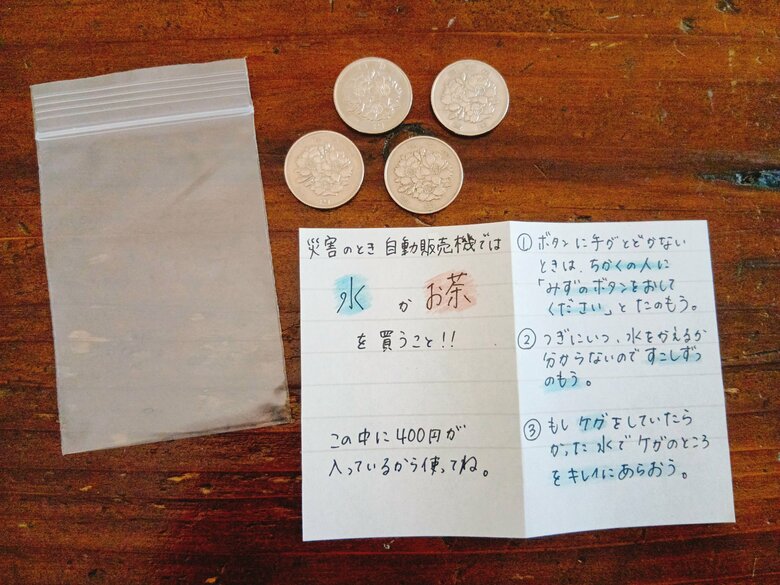 災害のとき自動販売機では
水 か お茶
を買うこと!!
この中に400円が
入っているから使ってね。
① ボタンに手がとどかない
ときは、ちかくの人に
「みずのボタンをおして
ください」とたのもう。
② つぎにいつ、水をかえるか
分からないのですこしずつ
のもう。
③ もしケガをしていたら
かった水でケガのところ
をキレイにあらおう。